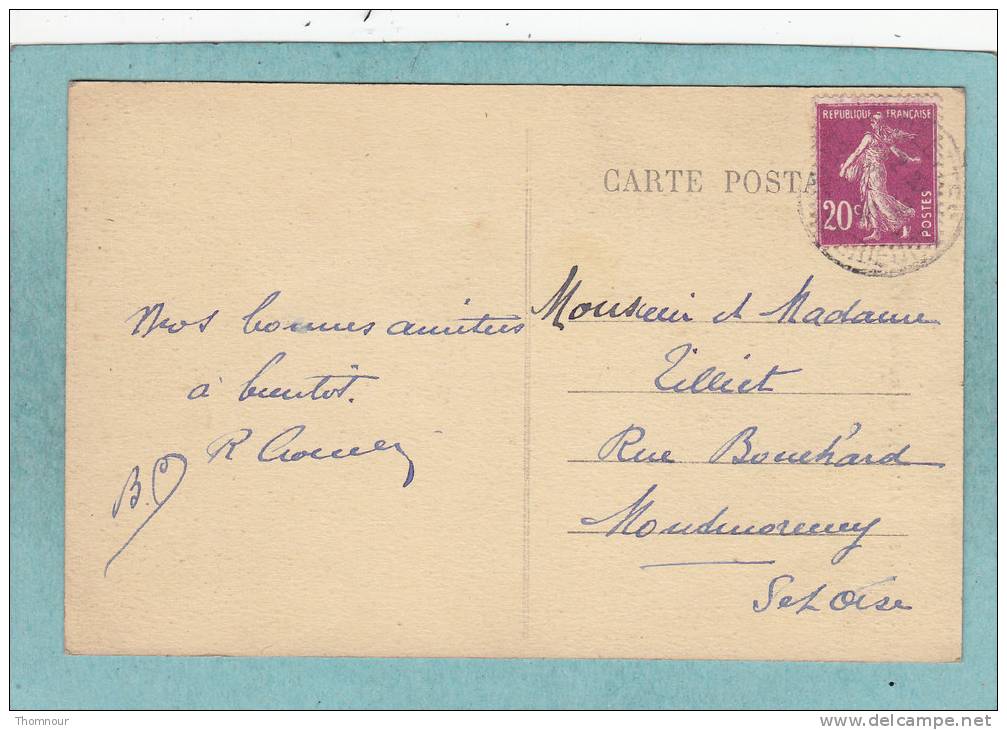 CARTE POSTA
REPUBLIQUE FRANÇAISE
20c
POSTES
Nos bonnes amitiés
à bientôt.
R
B.
Monsieur et Madame
Tilliet
Rue Bouchard
Montmorency
S et Oise
Thomnour
www.delcampe.net